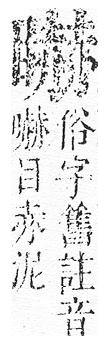 俗字舊註音
嚇日赤泥